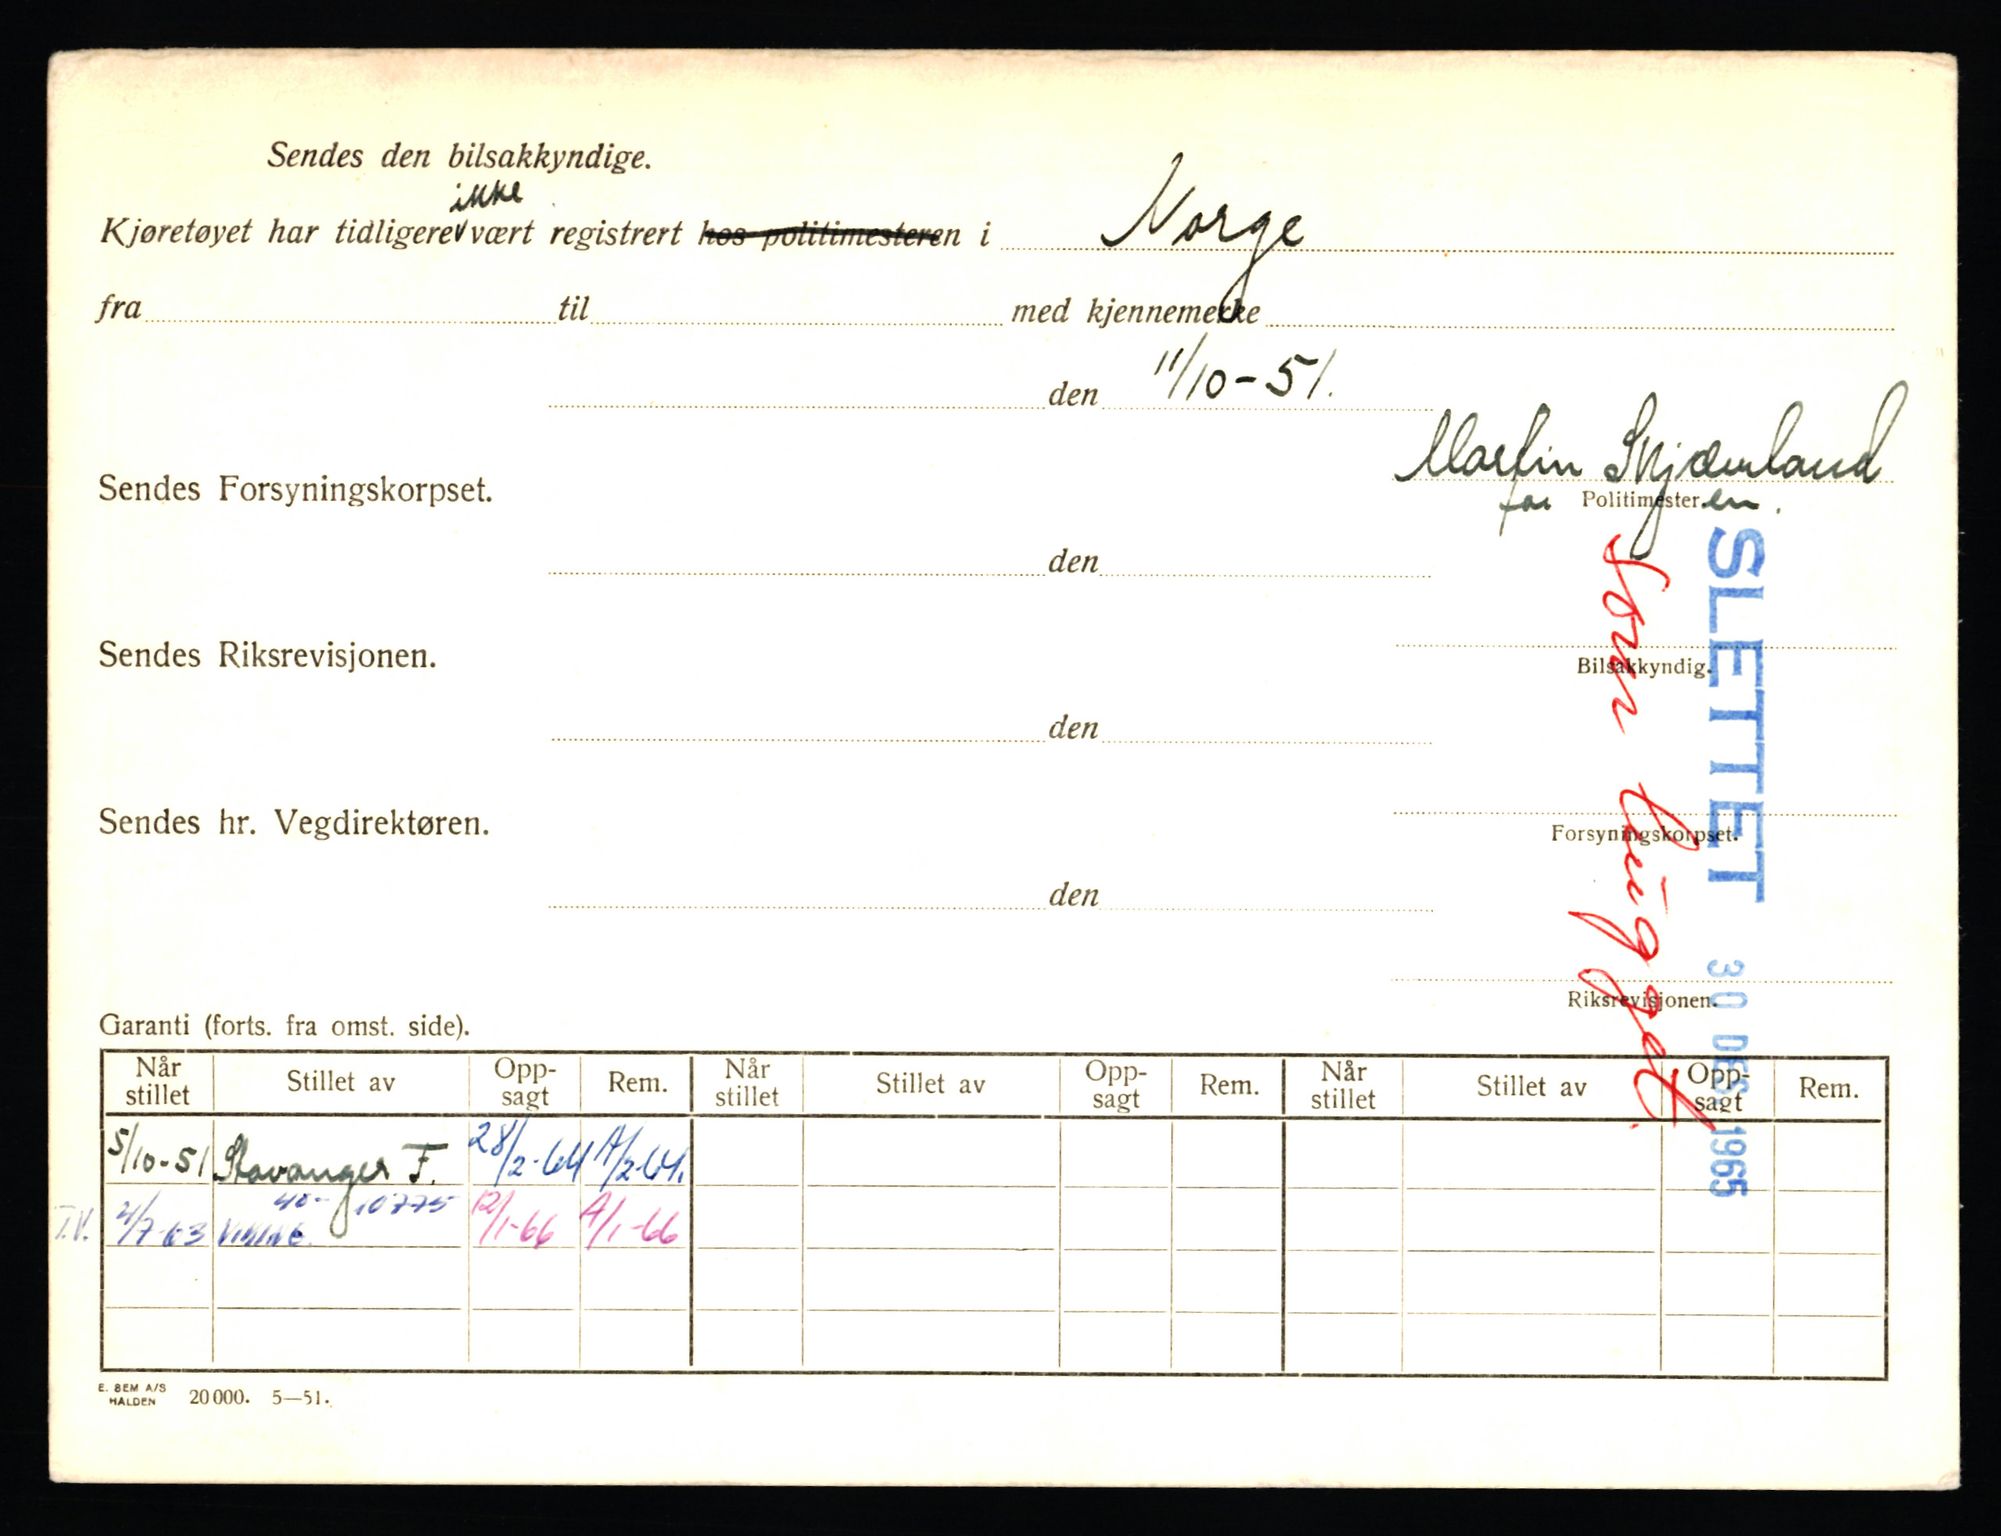 Sendes den bilsakkyndige.
ikke
Kjøretøyet har tidligere vært registrert hos politimesteren i Norge
fra til med kjennemerke
den 11/10-51.
Martin Skjæveland
Sendes Forsyningskorpset.
for Politimesteren.
den
Sendes Riksrevisjonen.
Bilsakkyndig.
den
Sendes hr. Vegdirektøren.
Forsyningskorpset.
den
Riksrevisjonen.
SLETTET 30 DES. 1965
Som
Garanti (forts. fra omst. side).
Når stillet Stillet av Opp-sagt Rem. Når stillet Stillet av Opp-sagt Rem. Når stillet Stillet av Opp-sagt Rem.
5/10-51 Stavanger F. 28/2-64 A/2-64.
40- 10775
T.V. 4/7-63 Viking 12/1-66 A/1-66
E. SEM A/S
HALDEN 20 000. 5—51.